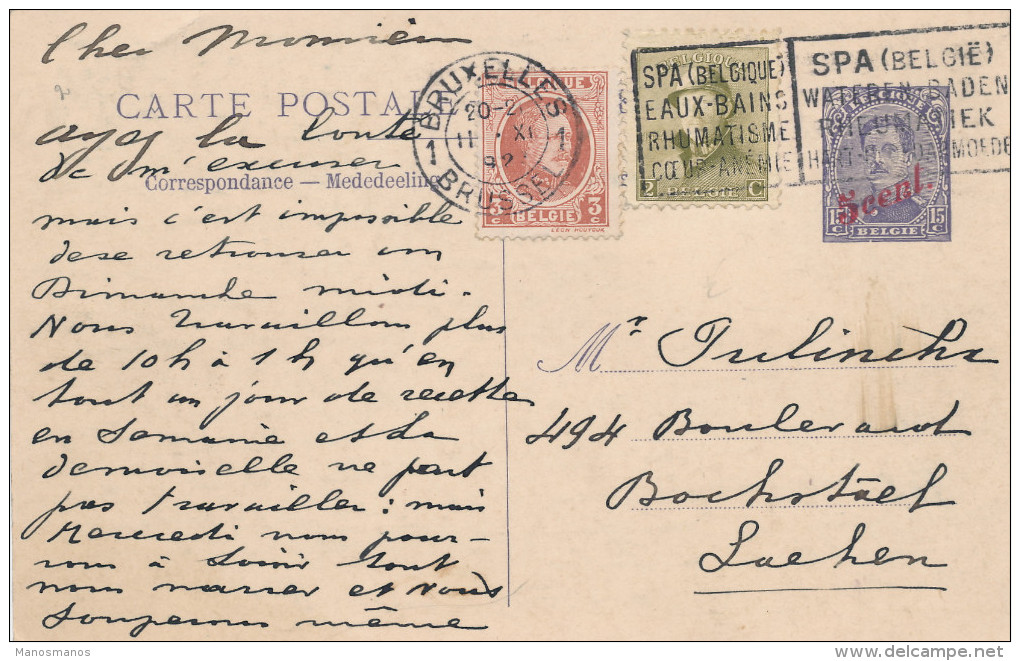 Cher Monsieur
CARTE POSTAL
ayez la bonté
de m'excuser
Correspondance — Mededeelin
mais c'est impossible
de se retrouver un
Dimanche midi.
Nous travaillons plus
de 10h à 1h qu'en
tout un jour de recettes
en Semaine et la
demoiselle ne peut
pas travailler : mais
Mercredi nous pour-
rons à loisir tout
nous narrer et nous
souperons même
BRUXELLES
1 1
20-2
11 XI
BRUSSEL
BELGIQUE
3 C BELGIE 3 C
LEON HOUYOUX
BELGIQUE
2 BELGIE C
SPA (BELGIQUE)
EAUX-BAINS
RHUMATISME
CŒUR-ANÉMIE
SPA (BELGIË)
WATEREN-BADEN
RHEUMATIEK
BELGIQUE
5 cent.
15 C BELGIE 15 C
Mr
494 Boulevard
Bockstael
Laeken
Manosmanos